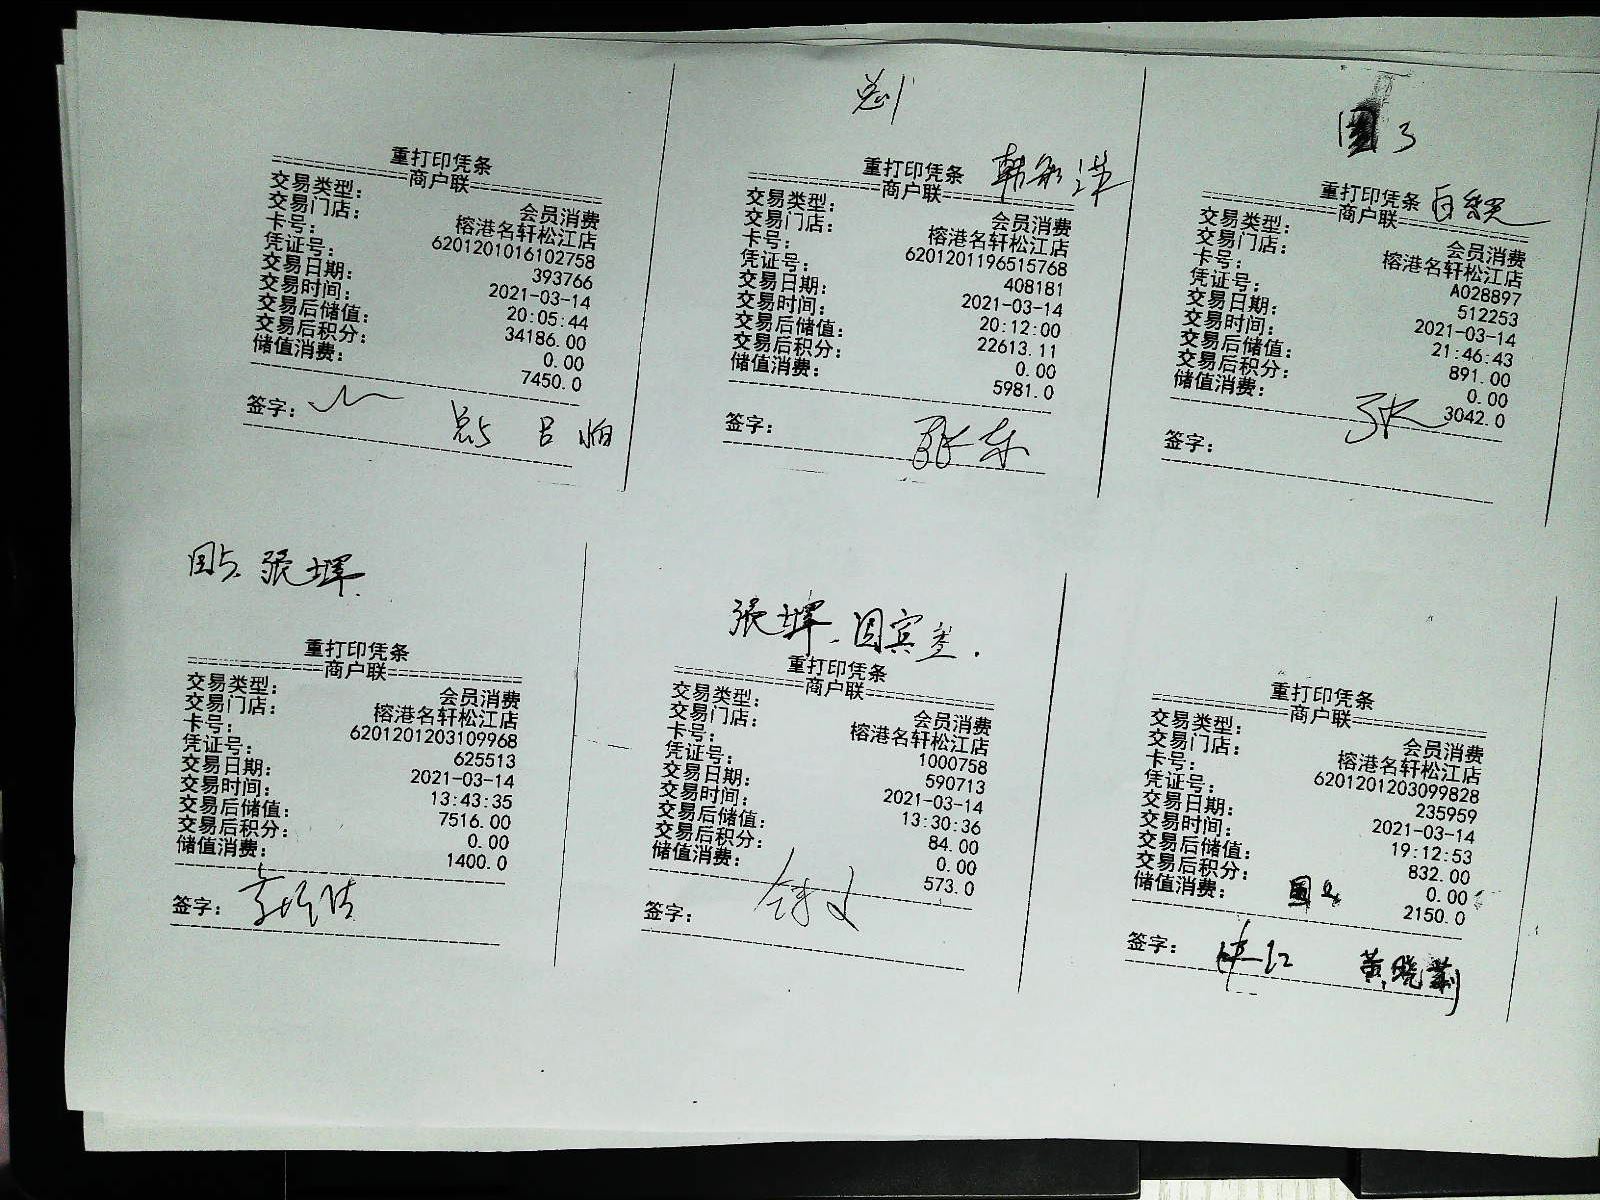 重打印凭条
商户联
交易类型： 会员消费
交易门店： 榕港名轩松江店
卡号： 6201201016102758
凭证号： 393766
交易日期： 2021-03-14
交易时间： 20:05:44
交易后储值： 34186.00
交易后积分： 0.00
储值消费： 7450.0
签字：
重打印凭条
商户联
交易类型： 会员消费
交易门店： 榕港名轩松江店
卡号： 6201201196515768
凭证号： 408181
交易日期： 2021-03-14
交易时间： 20:12:00
交易后储值： 22613.11
交易后积分： 0.00
储值消费： 5981.0
签字： 张东
重打印凭条
商户联
交易类型： 会员消费
交易门店： 榕港名轩松江店
卡号： A028897
凭证号： 512253
交易日期： 2021-03-14
交易时间： 21:46:43
交易后储值： 891.00
交易后积分： 0.00
储值消费： 3042.0
签字： 张
重打印凭条
商户联
交易类型： 会员消费
交易门店： 榕港名轩松江店
卡号： 6201201203109968
凭证号： 625513
交易日期： 2021-03-14
交易时间： 13:43:35
交易后储值： 7516.00
交易后积分： 0.00
储值消费： 1400.0
签字：
重打印凭条
商户联
交易类型： 会员消费
交易门店： 榕港名轩松江店
卡号： 1000758
凭证号： 590713
交易日期： 2021-03-14
交易时间： 13:30:36
交易后储值： 84.00
交易后积分： 0.00
储值消费： 573.0
签字：
重打印凭条
商户联
交易类型： 会员消费
交易门店： 榕港名轩松江店
卡号： 6201201203099828
凭证号： 235959
交易日期： 2021-03-14
交易时间： 19:12:53
交易后储值： 832.00
交易后积分： 0.00
储值消费： 2150.0
签字： 黄晓莉